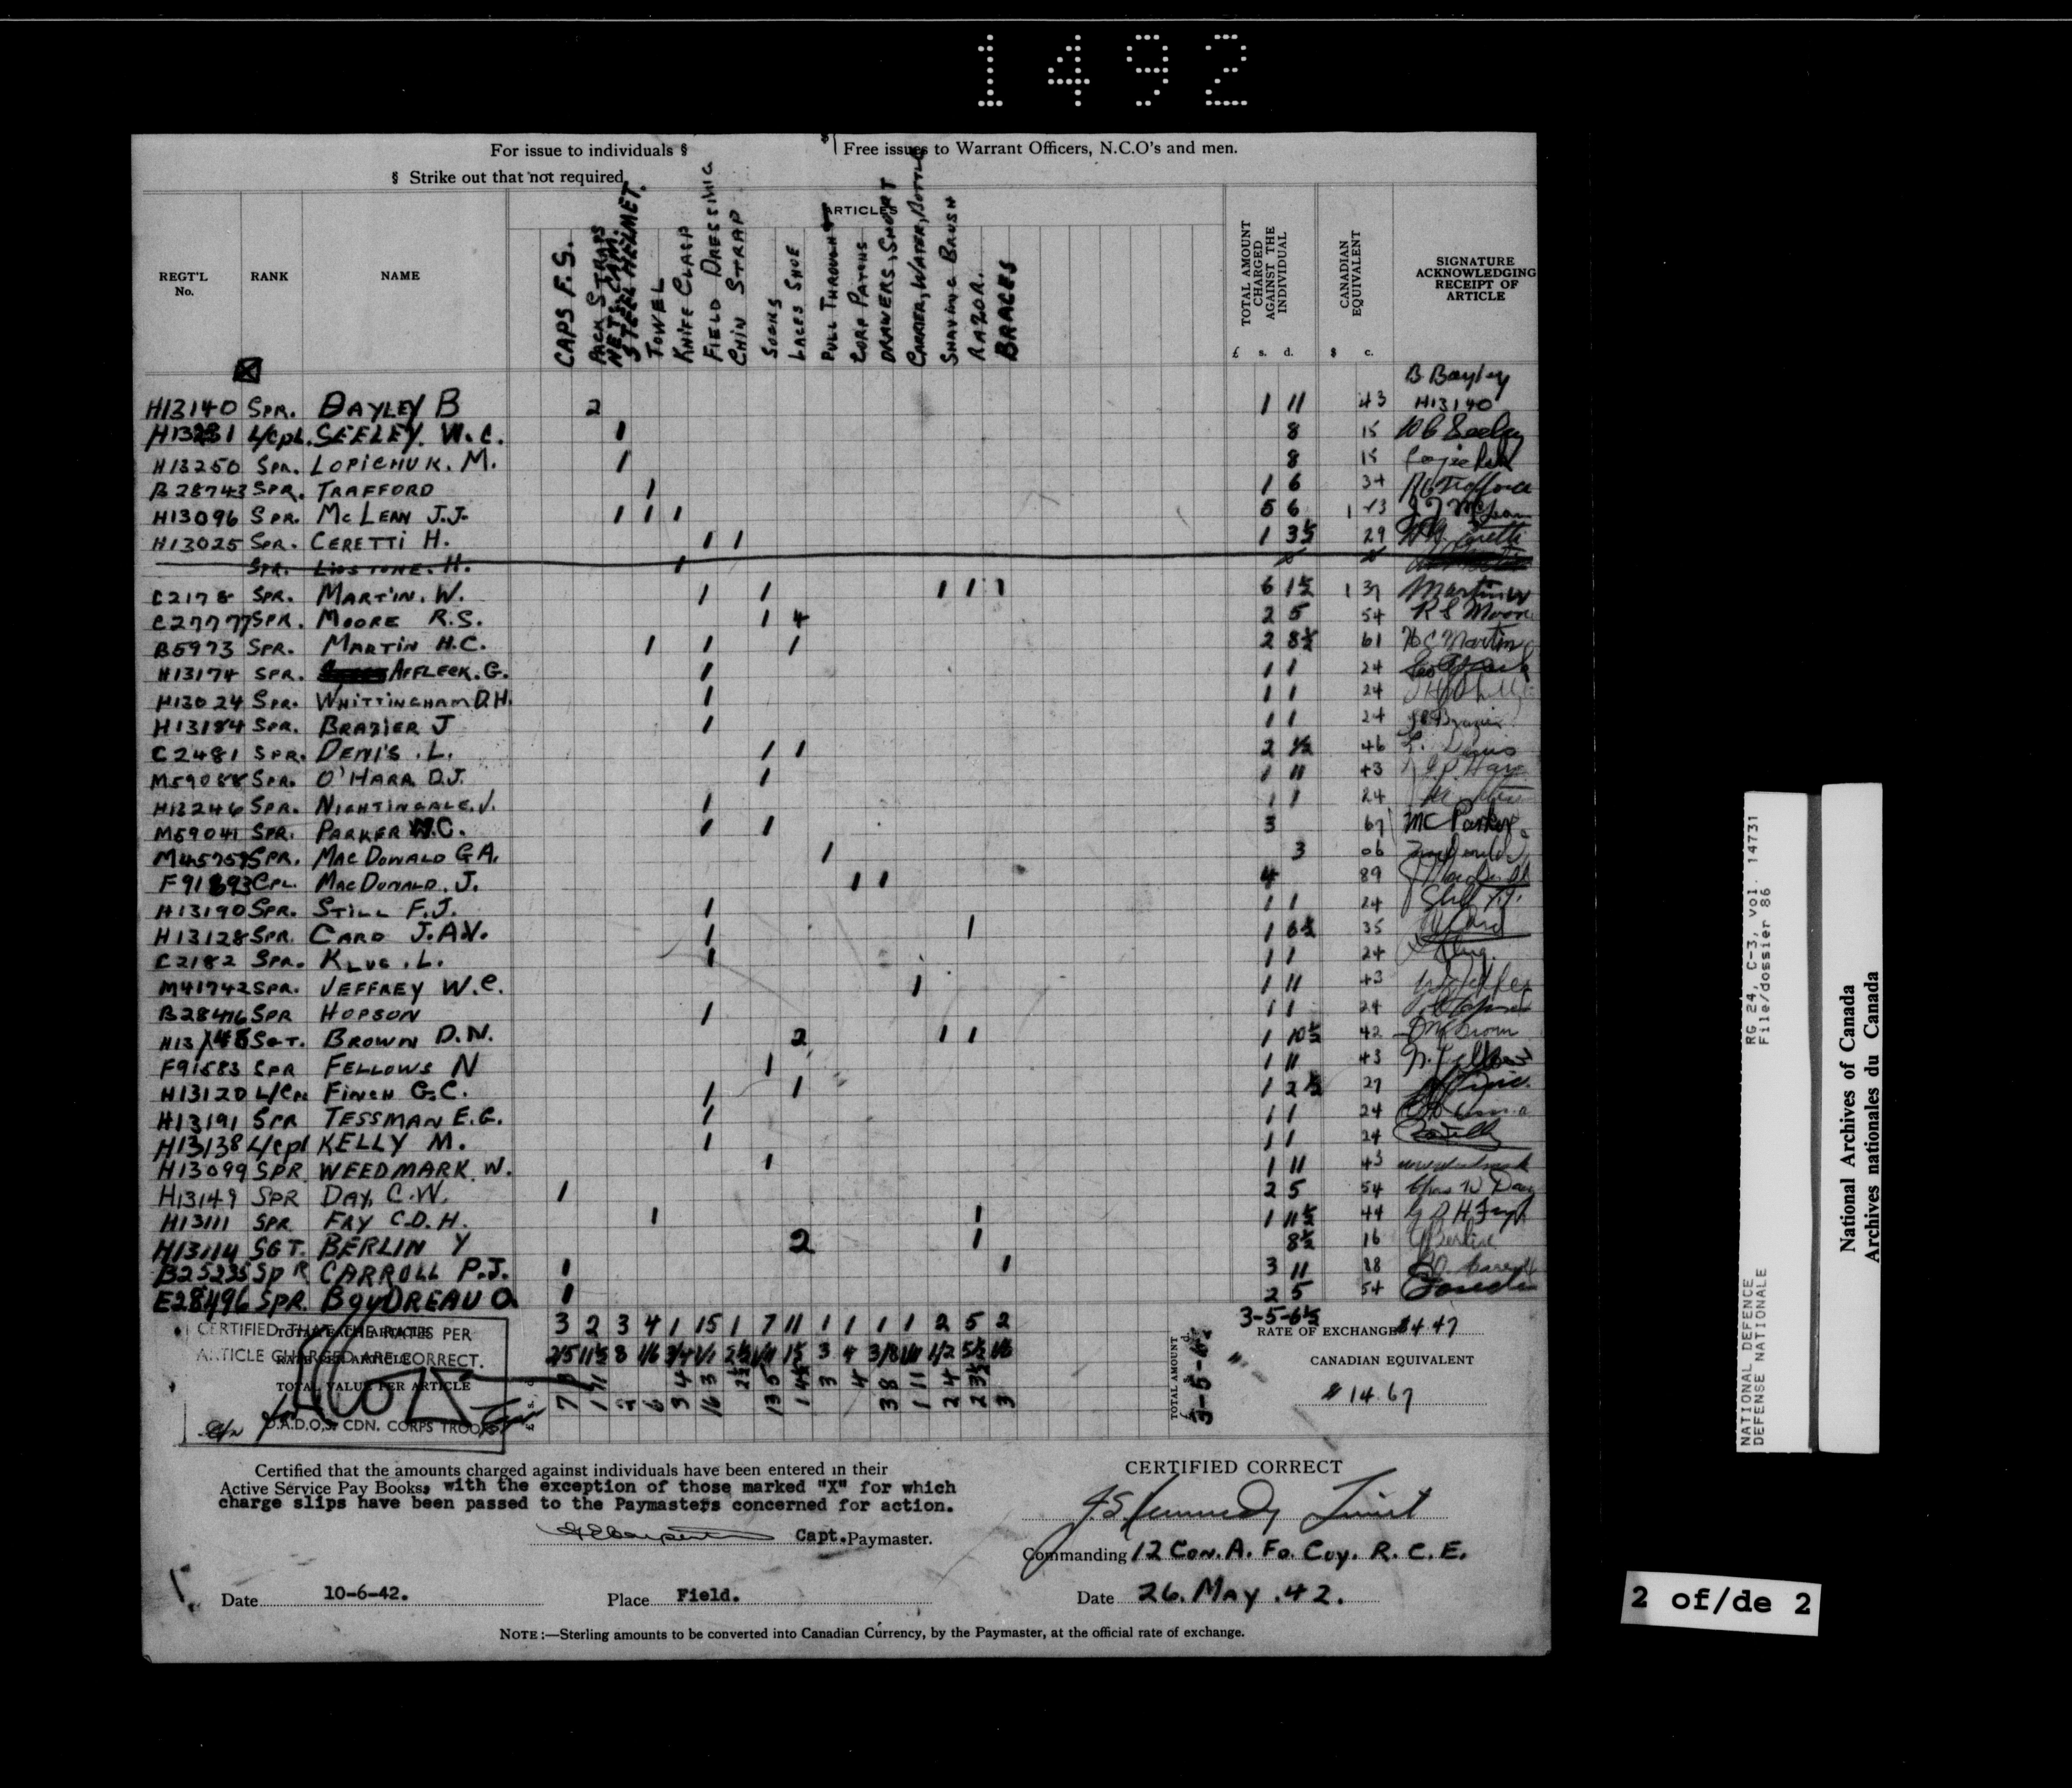 1492
For issue to individuals § Free issues to Warrant Officers, N.C.O's and men.
§ Strike out that not required
ARTICLES
REGT'L No. RANK NAME CAPS F.S. PACK STRAPS NETS CAM. STEEL HELMET. TOWEL KNIFE CLASP FIELD DRESSING CHIN STRAP SOCKS LACES SHOE PULL THROUGH CORP PATCHS DRAWERS, SHORT CARRIER, WATER, BOTTLE SHAVING BRUSH RAZOR. BRACES TOTAL AMOUNT CHARGED AGAINST THE INDIVIDUAL CANADIAN EQUIVALENT SIGNATURE ACKNOWLEDGING RECEIPT OF ARTICLE
£ s. d. $ c.
B Bayley
H13140 SPR. BAYLEY B 2 1 11 43 H13140
L/CPL. SEELEY. W.C. 1 8 15 W C Seeley
H13250 SPR. LOPICHUK. M. 1 8 15
B28743 SPR. TRAFFORD 1 1 6 34
H13096 SPR. McLEAN J.J. 1 1 1 5 6 1 23 J J McLean
H13025 SPR. CERETTI H. 1 1 1 3½ 29 Ceretti
SPR. H. 1
C2178 SPR. MARTIN. W. 1 1 1 1 1 6 1½ 1 37 Martin W
C27777 SPR. MOORE R.S. 1 4 2 5 54 R S Moore
B5973 SPR. MARTIN H.C. 1 1 1 2 8½ 61 H C Martin
H13174 SPR. AFFLECK. G. 1 1 1 24
H13024 SPR. WHITTINGHAM D.H. 1 1 1 24
H13184 SPR. BRAZIER J 1 1 1 24 Brazier
C2481 SPR. DENIS. L. 1 1 2 ½ 46 L. Denis
M59088 SPR. O'HARA D.J. 1 1 11 43
H13246 SPR. NIGHTINGALE. J. 1 1 1 24
M59041 SPR. PARKER W.C. 1 1 3 67 Parker
SPR. MACDONALD G A. 1 3 06
F91893 CPL. MACDONALD. J. 1 1 4 89
H13190 SPR. STILL F.J. 1 1 1 24 Still F.J.
H13128 SPR. CARD J.A.V. 1 1 1 6½ 35 Card
C2182 SPR. KLUG. L. 1 1 1 24 Klug.
M41742 SPR. JEFFREY W.C. 1 1 11 43
B28416 SPR HOPSON 1 1 1 24
SGT. BROWN D.N. 2 1 1 1 10½ 42 Brown
F91583 SPR FELLOWS N 1 1 11 43 N. Fellows
H13120 L/CPL FINCH G.C. 1 1 1 2½ 27
H13191 SPR TESSMAN E.G. 1 1 1 24
H13138 L/CPL KELLY M. 1 1 1 24
H13099 SPR WEEDMARK. W. 1 1 11 43 Weedmark
H13149 SPR DAY, C.W. 1 2 5 54 Chas W Day
H13111 SPR FAY C.D.H. 1 1 1 11½ 44
H13114 SGT. BERLIN Y 2 1 8½ 16 Berlin
B25235 SPR CARROLL P.J. 1 1 3 11 88
E28496 SPR. BOUDREAU O. 1 2 5 54
3 2 3 4 1 15 1 7 11 1 1 1 1 2 5 2 3-5-6½
CERTIFIED THAT THE RATES PER
ARTICLE CHARGED ARE CORRECT.
TOTAL VALUE PER ARTICLE
D.A.D.O.S. CDN. CORPS TROOPS
2/5 11½ 8 1/6 3/4 1/1 2½ 1/11 1½ 3 4 3/8 1/11 1/2 5½ 1/6
RATE OF EXCHANGE $4.47
CANADIAN EQUIVALENT
TOTAL AMOUNT 3-5-6½
$14.67
Certified that the amounts charged against individuals have been entered in their
Active Service Pay Books, with the exception of those marked "X" for which
charge slips have been passed to the Paymasters concerned for action.
Capt. Paymaster.
Date 10-6-42. Place Field.
CERTIFIED CORRECT
J.S. Kennedy Lieut
Commanding 12 Con. A. Fo. Coy. R.C.E.
Date 26. May. 42.
NOTE:—Sterling amounts to be converted into Canadian Currency, by the Paymaster, at the official rate of exchange.
NATIONAL DEFENCE RG 24, C-3, vol. 14731
DEFENSE NATIONALE File/dossier 86
National Archives of Canada
Archives nationales du Canada
2 of/de 2